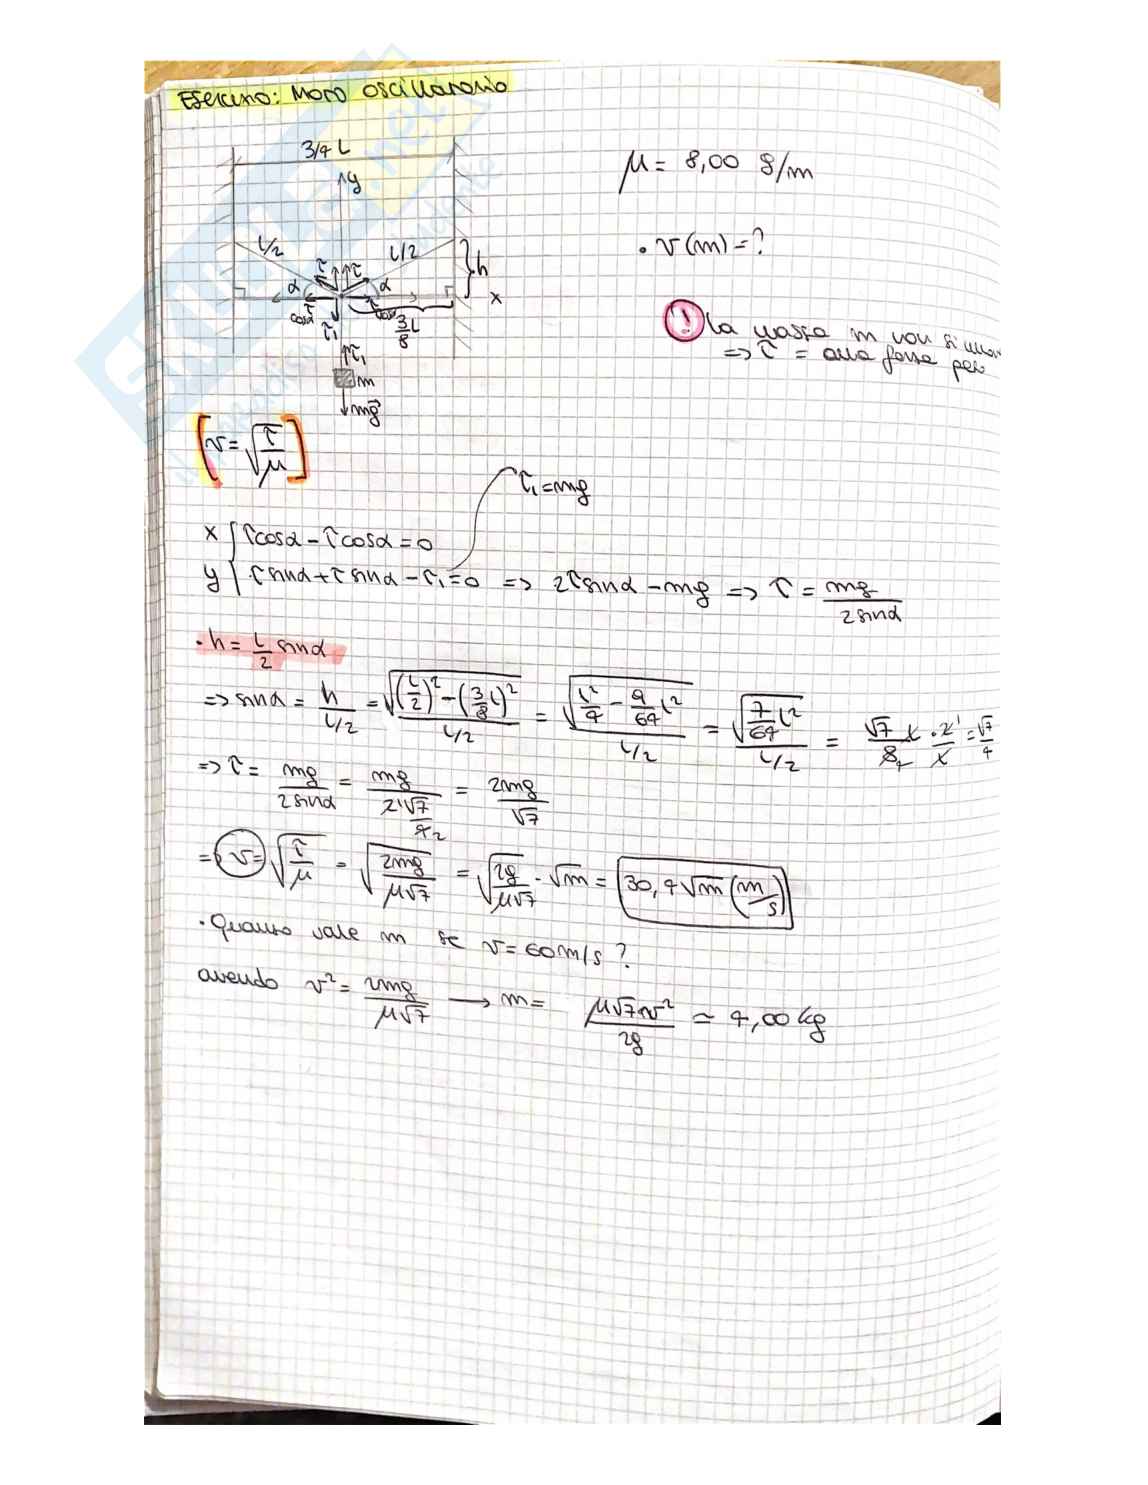 Esercizio: Moto oscillatorio
3/4 L
y
μ = 8,00 g/m
L/2
L/2
h
• v(m) = ?
τ
τ
α
α
x
τ cosα
τ₁
τ cosα
3/8 L
! la massa m non si muo
=> τ = alla forza peso
τ₁
m
mg⃗
[v = √(τ/μ)]
τ₁ = mg
x { τcosα - τcosα = 0
y { τsinα + τsinα - τ₁ = 0 => 2τsinα - mg => τ = mg/2sinα
• h = L/2 sinα
=> sinα = h/(L/2) = √((L/2)² - (3/8 L)²)/(L/2) = √(L²/4 - 9/64 L²)/(L/2) = √(7/64 L²)/(L/2) = √7/8₄ L · 2¹/L = √7/4
=> τ = mg/2sinα = mg/(2¹√7/4₂) = 2mg/√7
=> v = √(τ/μ) = √(2mg/μ√7) = √(2g/μ√7) · √m = 30,4 √m (m/s)
• Quanto vale m se v = 60 m/s ?
avendo v² = 2mg/μ√7 → m = μ√7v²/2g ≃ 4,00 kg